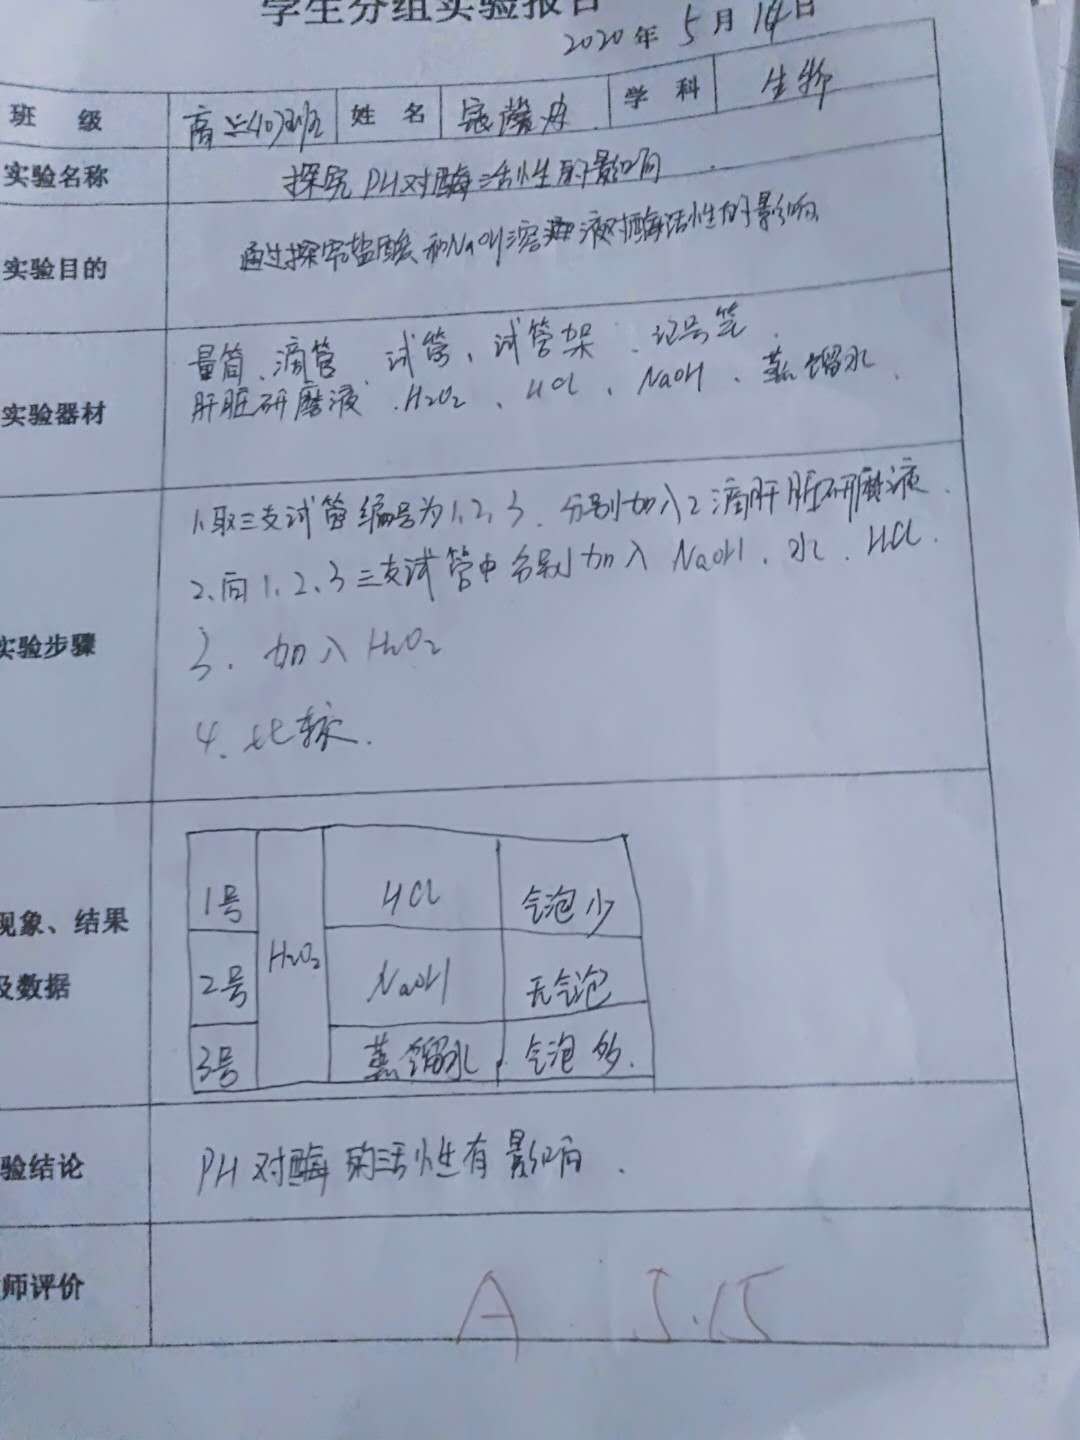 学生分组实验报告
2020年5月14日
班 级 高二407班 姓 名 学 科 生物
实验名称 探究PH对酶活性的影响
实验目的 通过探究盐酸和NaOH溶液对酶活性的影响
量筒、滴管、试管、试管架、记号笔、
实验器材 肝脏研磨液、H₂O₂、HCl、NaOH、蒸馏水、
1、取三支试管编号为1、2、3、分别加入2滴肝脏研磨液、
2、向1、2、3三支试管中分别加入NaOH、水、HCl.
实验步骤 3、加入H₂O₂
4、比较.
现象、结果
及数据
1号 H₂O₂ HCl 气泡少
2号 NaOH 无气泡
3号 蒸馏水 气泡多.
验结论 PH对酶的活性有影响.
师评价 A 5.15